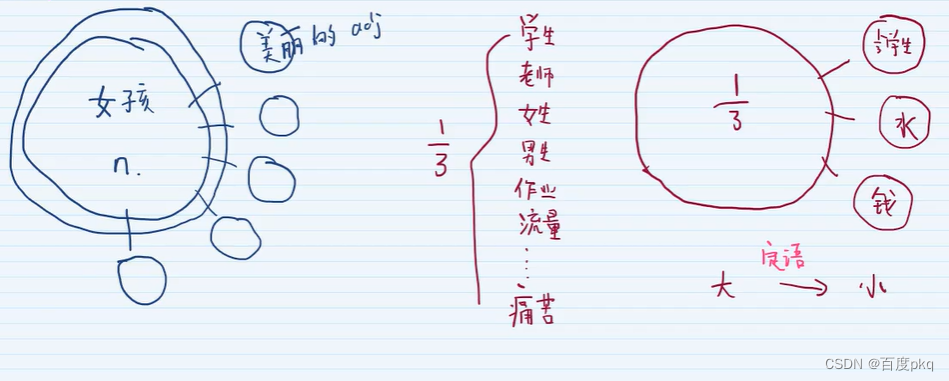 美丽的 adj
女孩
n.
1/3
学生
老师
女性
男生
作业
流量
……
痛苦
1/3
学生
水
钱
定语
大 → 小
CSDN @百度pkq